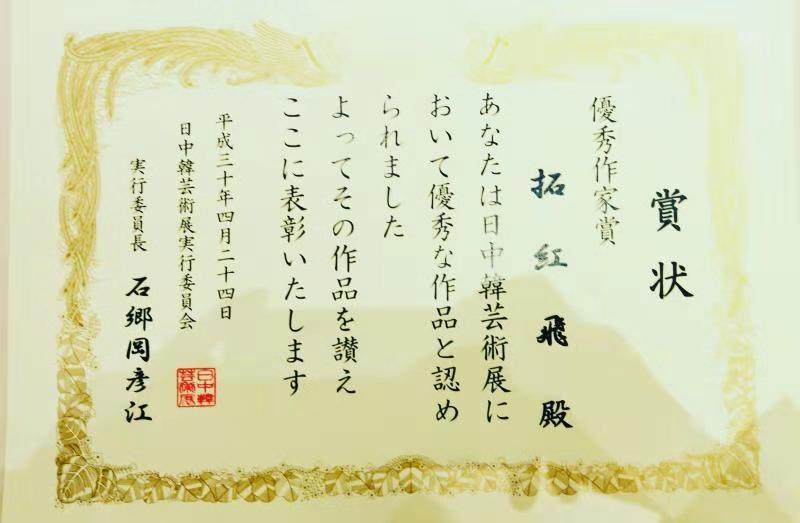 賞状
優秀作家賞
拓紅飛殿
あなたは日中韓芸術展に
おいて優秀な作品と認め
られました
よってその作品を讃え
ここに表彰いたします
平成三十年四月二十四日
日中韓芸術展実行委員会
実行委員長 石郷岡彦江
日中韓